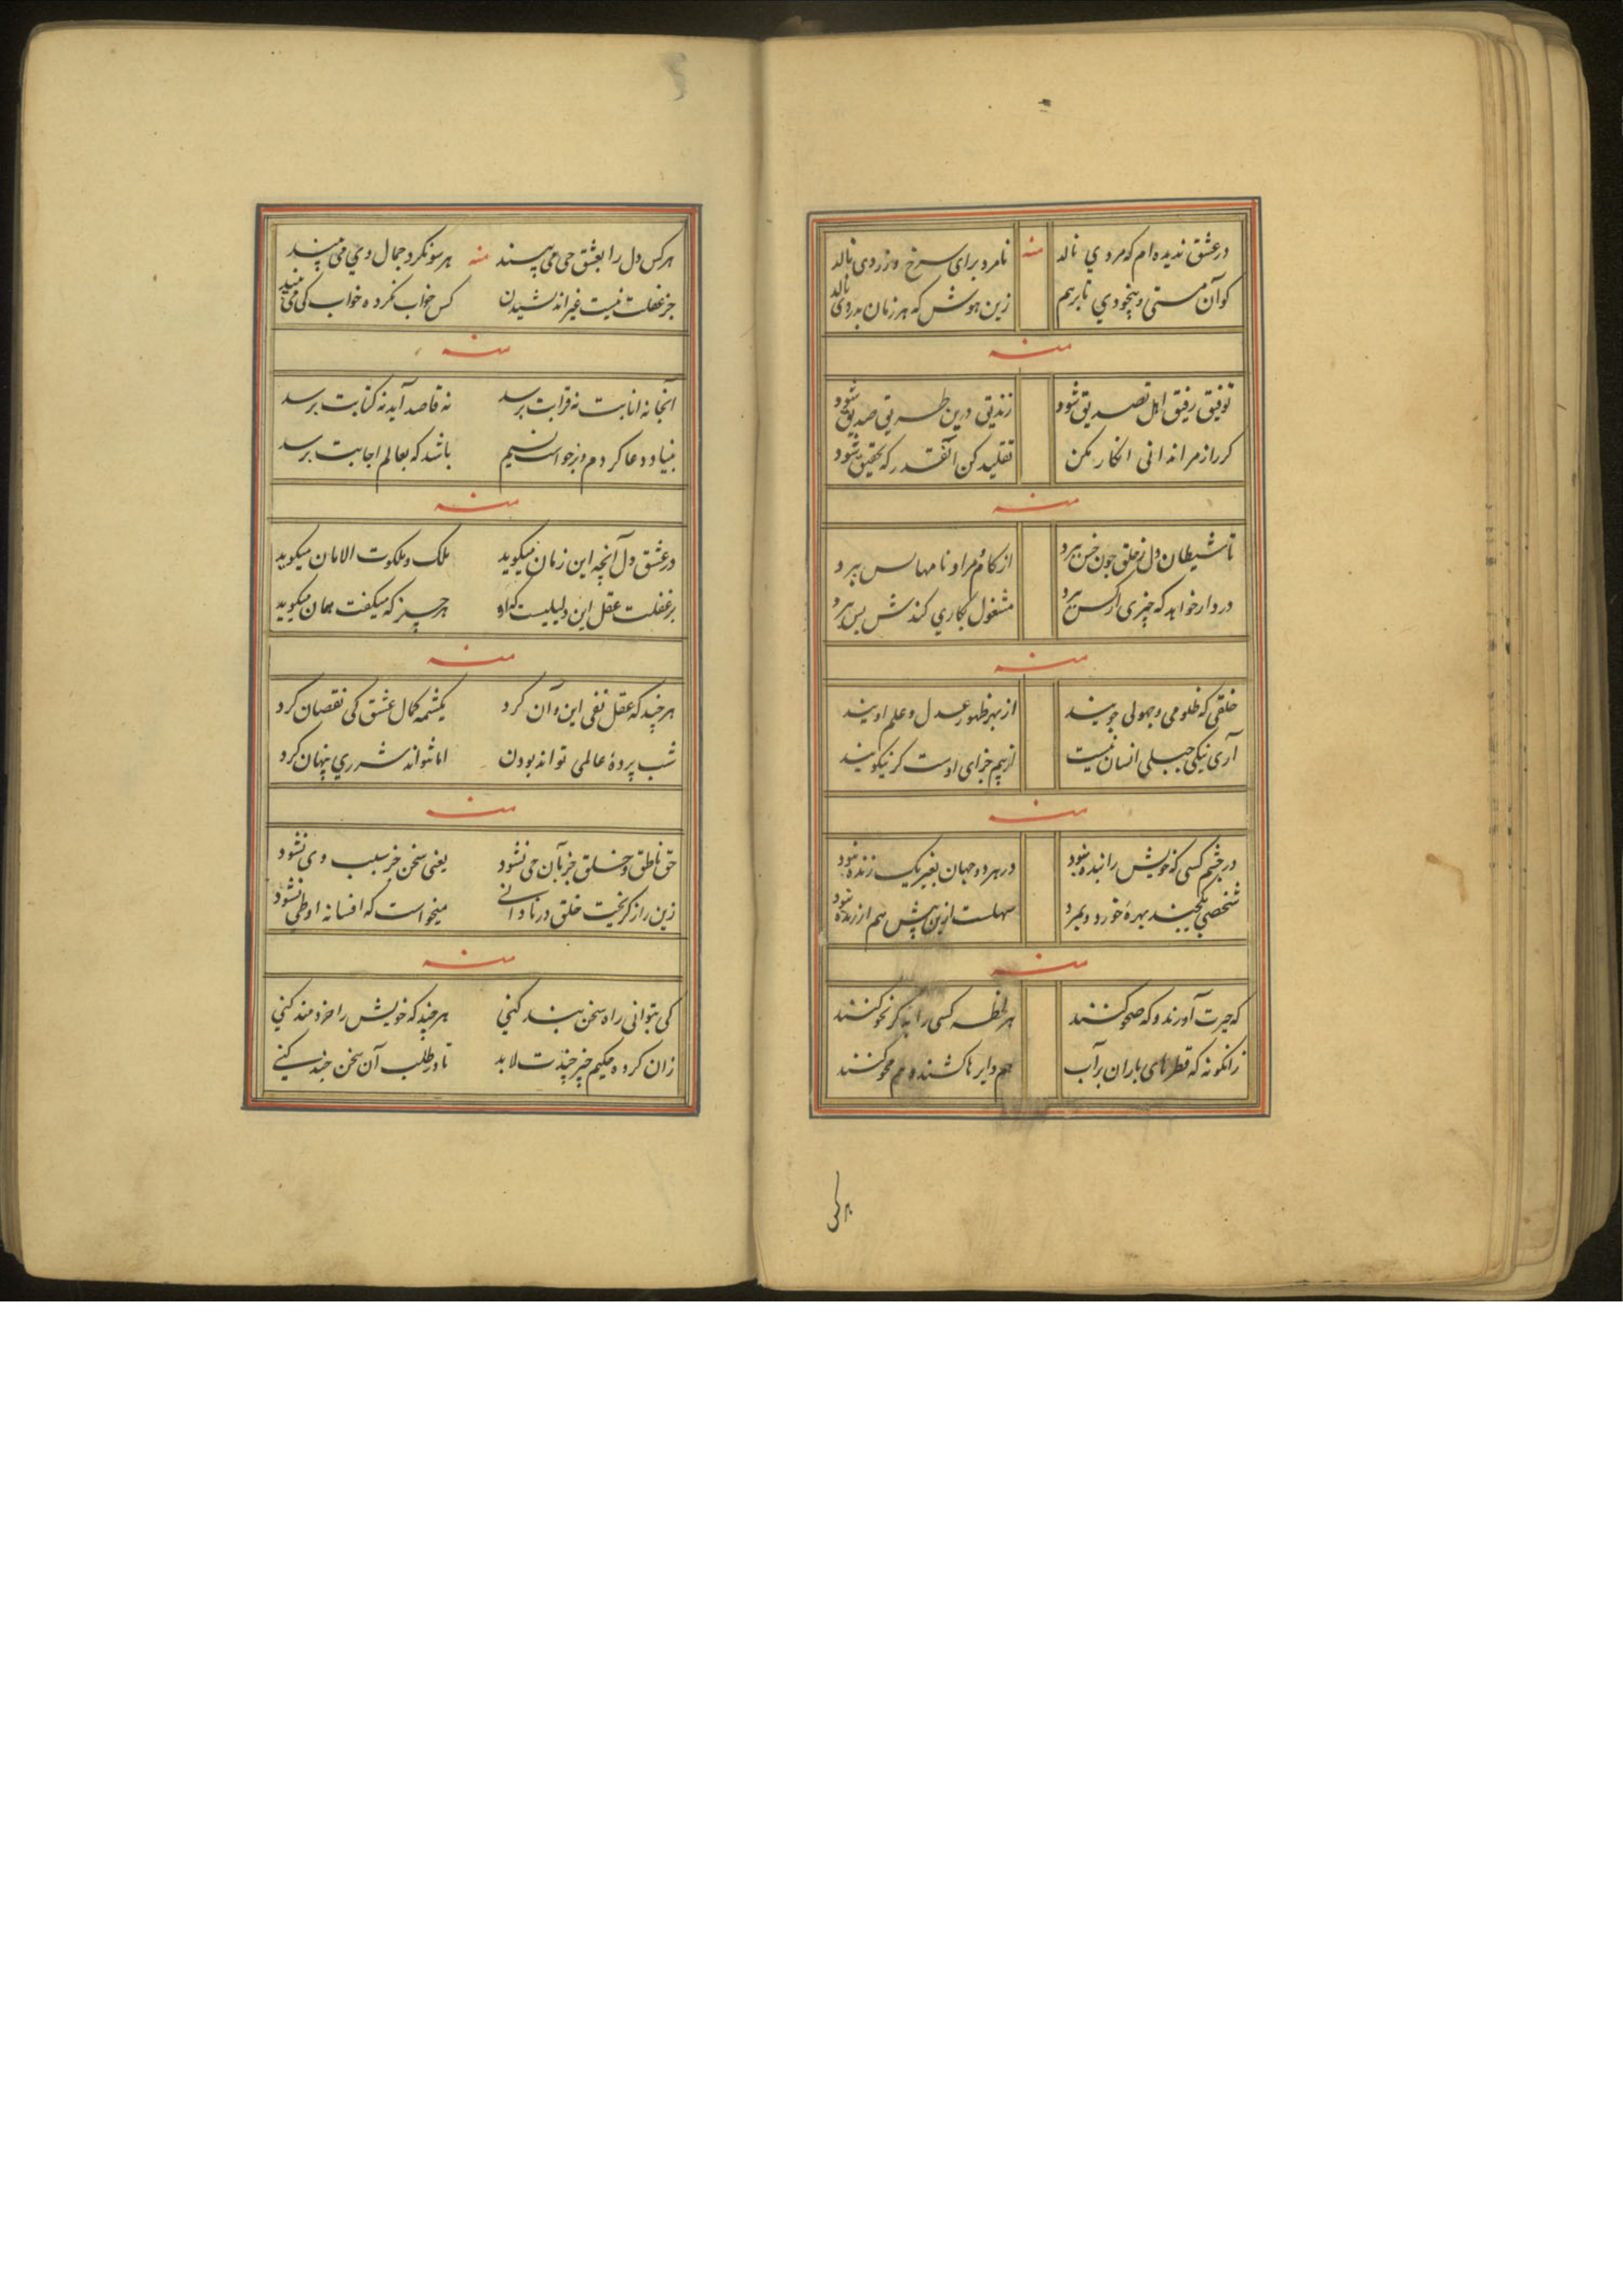 در عشق ندیده‌ام که مردي نالد منه نامرد برای سرخ و زردی نالد
کو آن مستی و بیخودي تا برهم زین هوش که هر زمان بدردی نالد
منه
توفیق رفیق اهل تصدیق شود زندیق درین طریق صدیق شود
کر راز مرا ندانی انکار مکن تقلید کن آنقدر که تحقیق شود
منه
تا شیطان دل ز خلق چون خس ببرد از کام و مراد نا مهاس ببرد
دردار خواهد که چیزی از کس ببرد مشغول بکاري کندش پس ببرد
منه
خلقی که ظلومی و جهولی جویند از بهر ظهور عدل و علم اویند
آری نیکی جبلی انسان نیست از بیم جزای اوست کر نیکویند
منه
در چشم کسی که خویش را بنده بود در هر دو جهان بغیر یک زنده نبود
شخصی بکجیند بهرهٔ خورد و بمرد سهلست ازین پیش هم از زنده نبود
منه
که حیرت آورند و که صحو کنند هر لحظه کسی را به کر نحو کنند
زانکونه که قطرهای باران بر آب هم دایرها کشند و هم محو کنند
هر کس
هر کس دل را بعشق حی می‌پسند منه هر سو نکرد جمال وي می‌بیند
جز غفلت نیست غیر اندیشیدن کس خواب نکرده خواب کی می‌بیند
منه
آنجا نه انابت نه قرابت برسد نه قاصد آید نه کتابت برسد
بنیاد دعا کردم و برخواست نسیم باشد که بعالم اجابت برسد
منه
در عشق دل آنچه این زمان میکوید ملک و ملکوت الامان میکوید
بر غفلت عقل این دلیلیست که او هر چیز که میکفت همان میکوید
منه
هر چند که عقل نفی این و آن کرد یکشمه کمال عشق کی نقصان کرد
شب پردهٔ عالمی تواند بودن اما نتواند شرري پنهان کرد
منه
حق ناطق و خلق جز بآن حی نشود یعنی سخن جز سبب وی نشود
زین راز کریخت خلق در نادانے میخواست که افسانه او طی نشود
منه
کی بتوانی راه سخن بند کنی هر چند که خویش را خردمند کنی
زان کرده حکیم خیر چندت لابد تا در طلب آن سخن چند کنے